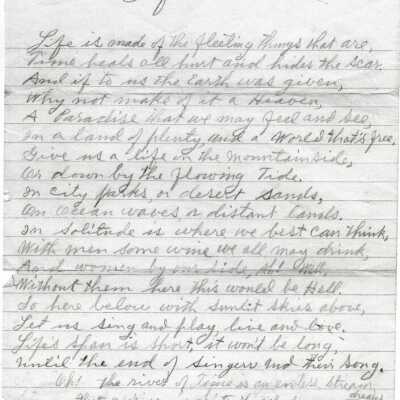 Life is made of the fleeting things that are,
Time heals all hurt and hides the scar.
And if to us the Earth was given,
Why not make of it a Heaven,
A Paradise that we may feel and see
In a land of plenty and a World that's free,
Give us a life on the Mountainside,
Or down by the flowing Tide.
In city parks, or desert sands,
On Ocean waves or distant lands.
In solitude is where we best can think,
With men some wine we all may drink,
And women by our side,
Without them here this would be Hell,
So here below with sunlit skies above,
Let us sing and play, live and love.
Life's span is short, it won't be long,
Until the end of singers and their song.
Oh! the river of Time is an endless stream,
dream